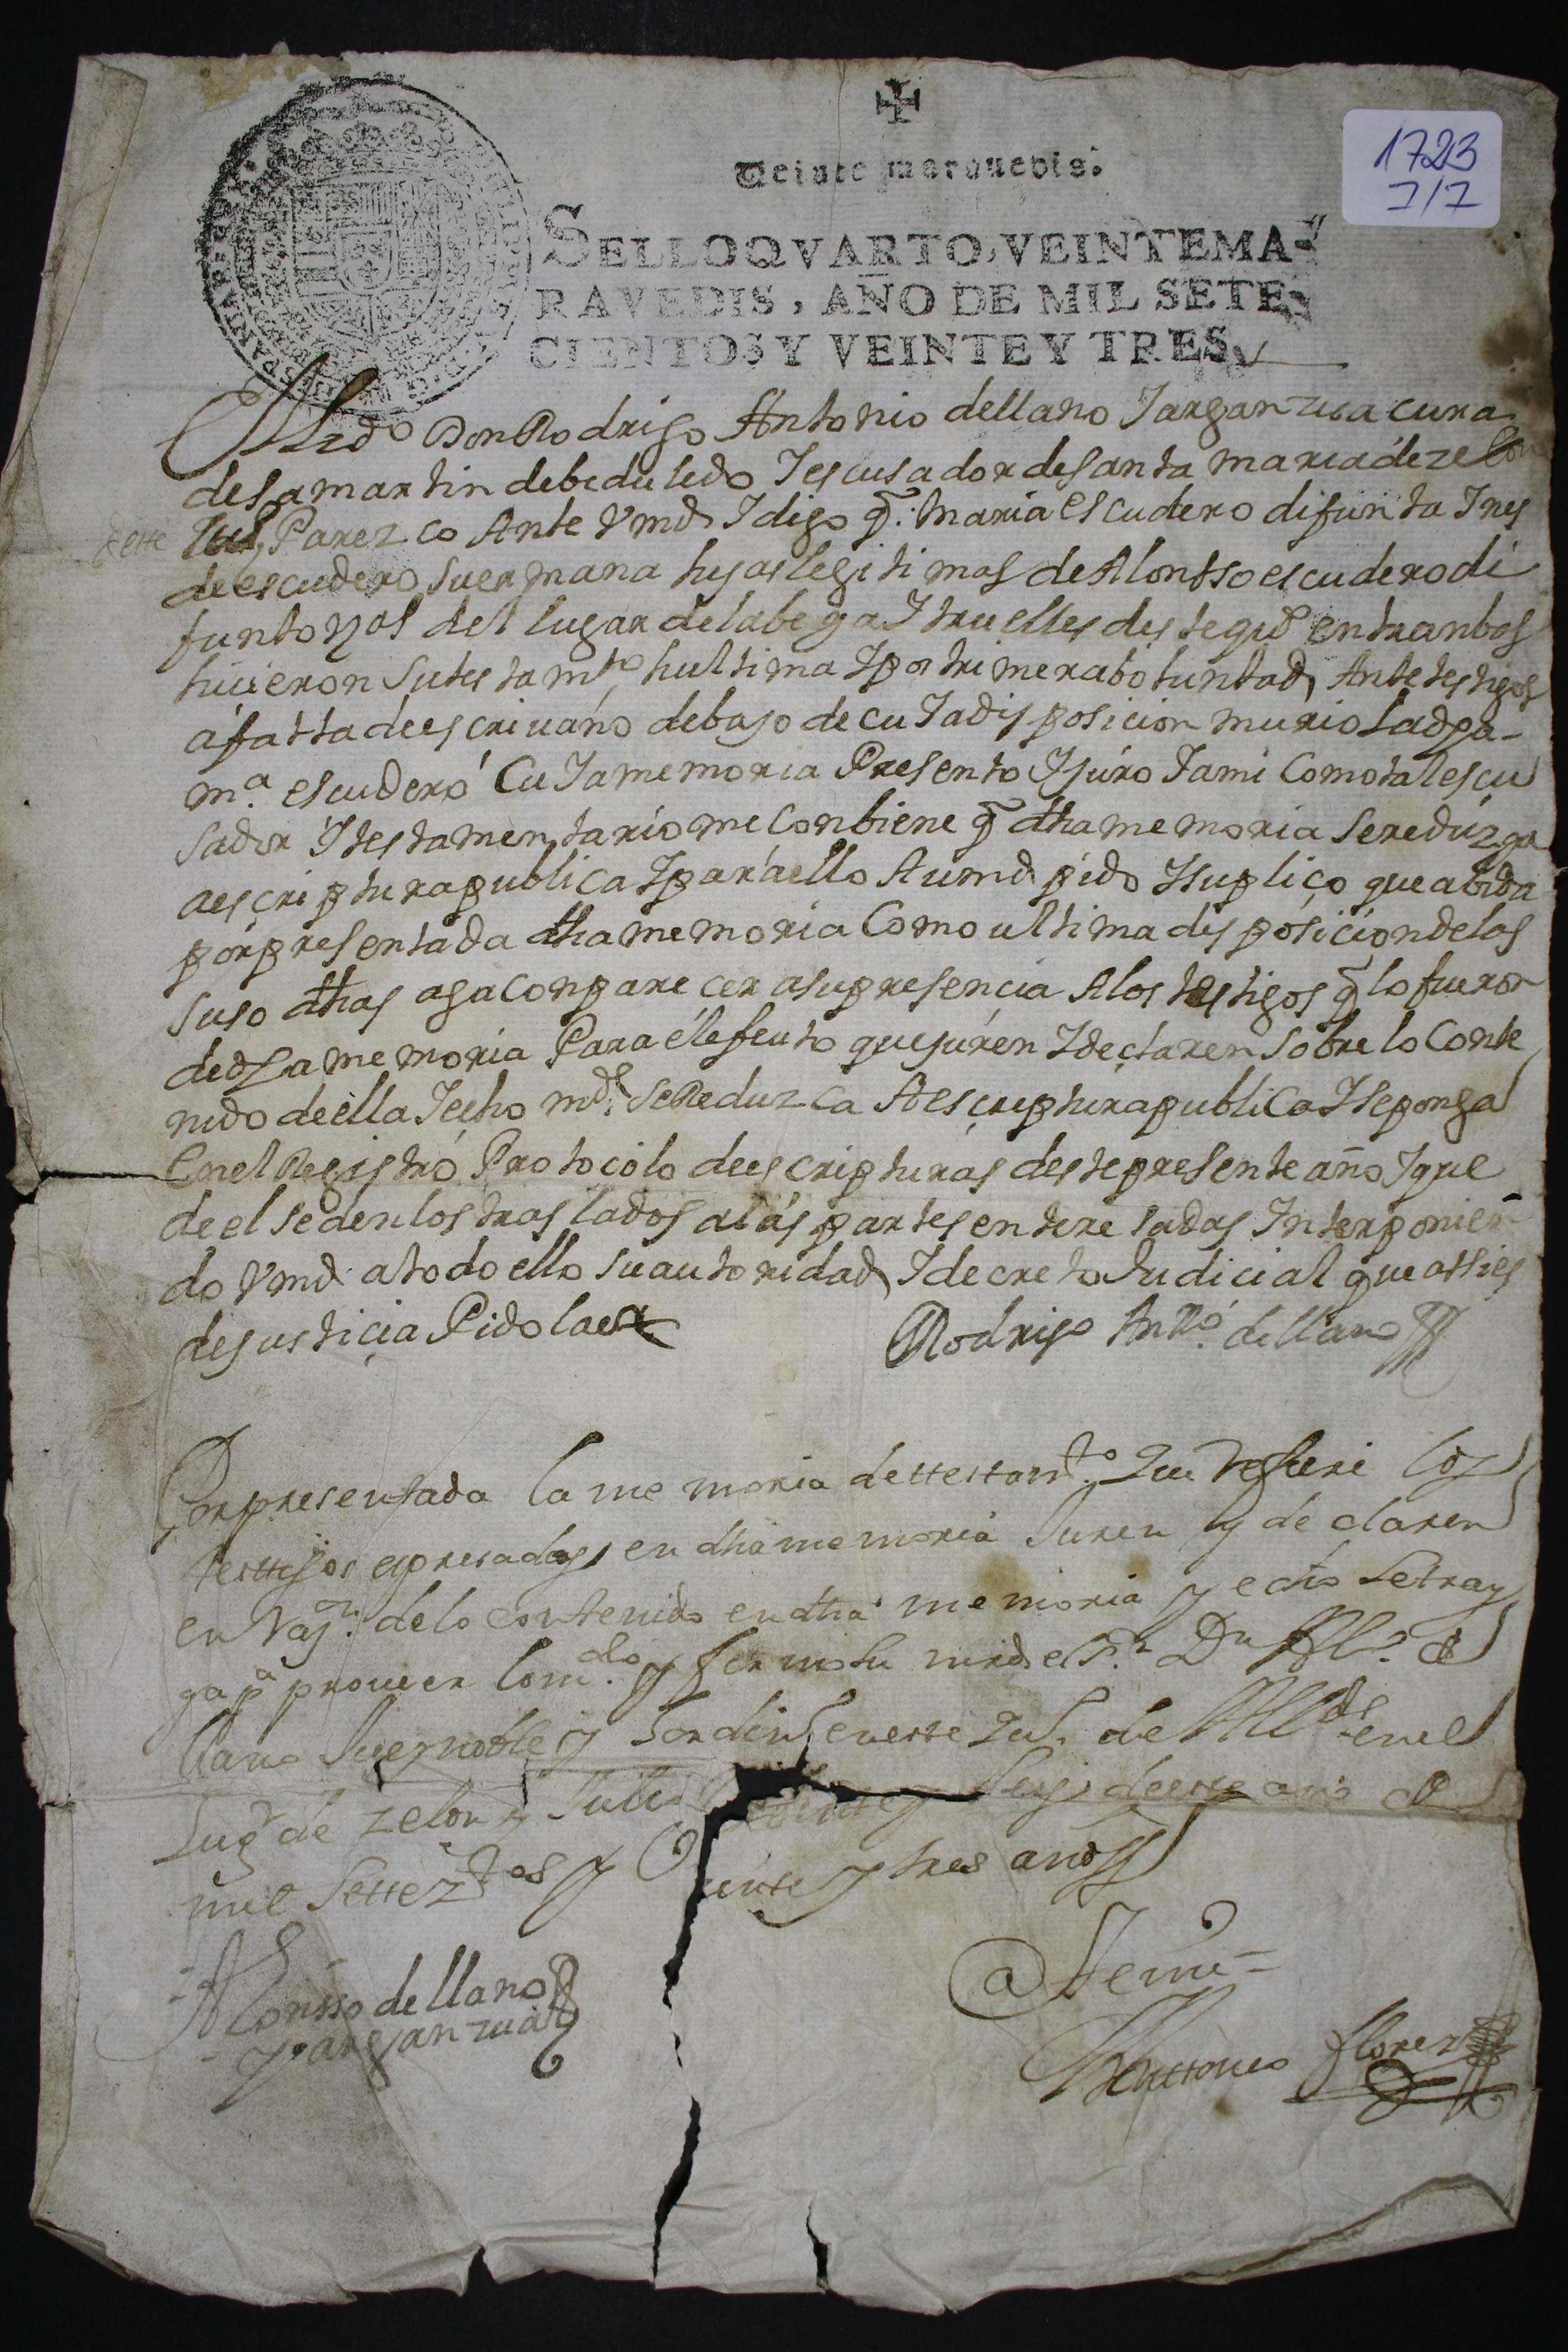 1723
7/7
Veinte maravedis.
SELLO QVARTO, VEINTE MA-
RAVEDIS, AÑO DE MIL SETE-
CIENTOS Y VEINTE Y TRES.
El Lzdo Don Rodrigo Antonio dellano Jarganzua cura
de sa martin de beduledo J escusador de santa maria de zelon
deste Parezco Ante Vmd J digo q. maria escudero difunta Ines
de escudero su ermana hijas legitimas de Alontso escudero di
funto vzos del lugar de labega J truelles deste qto entranbos
hicieron su testamto hultima J postrimera boluntad Ante testigos
á falta de escrivano debajo de cuJa disposicion murio la dha
ma. escudero CuJa memoria Presento J juro J a mi Como tal escu
sador J testamentario me Conbiene q dha memoria se reduzga
a escriptura publica J para ello A umd pido J suplico que abida
por presentada dha memoria Como ultima disposicion de las
suso dhas aga conparecer a su presencia A los testigos q lo fueron
de dha memoria Para él efeuto que juren J declaren Sobre lo Conte
nido de ella J echo md. se Reduzca A escriptura publica J se ponga
En el Registro Protocolo de escripturas deste presente año J que
de el se den los traslados a las partes enteresadas Interponien
do Vmd. a todo ello su autoridad J decreto Judicial que assi es
de justicia Pido la etta
Rodrigo Anto. dellano
Por presentada la memoria de testamto. Que refiere los
testigos espresados en dha memoria Juren y declaren
en raz.n de lo contenido en dha memoria y echo se tray
ga pa prover lo mdo. y firmo su mrd el Sr. Dn Alo. de
llano Juez noble y hordino en este qto. de enel
lugr de zelon a Julio veinte y seis de este año de
mil Settez.tos y Veinte y tres años
Alonsso dellano
Jarganzua
Ante mi=
Anttonio florez